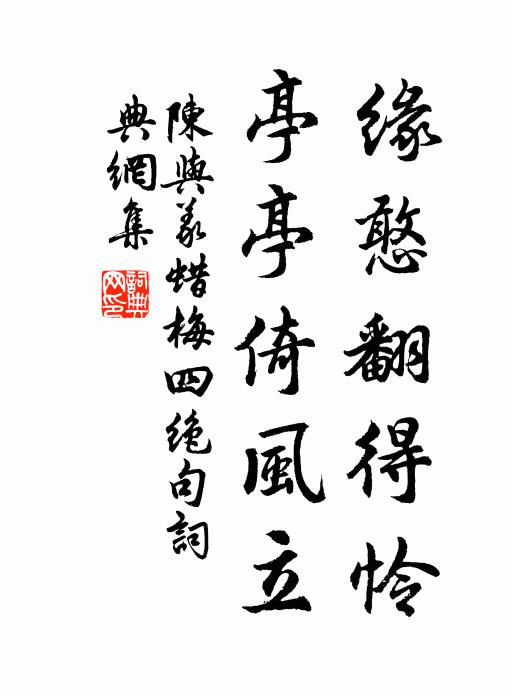 緣憨翻得怜
亭亭倚風立
陳與義蜡梅四絶句詞
典網集
詞典網印